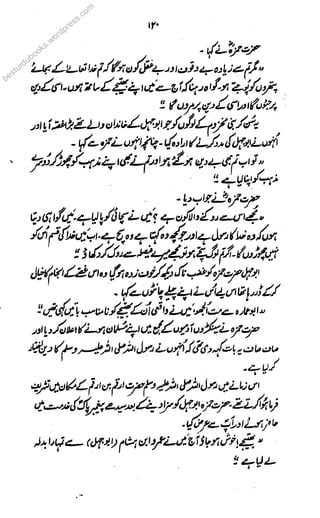 ۱۲۰
حضرت حمزہؓ نے کہا۔
"مگر تم سے زیادہ بے وقوف اور بے عقل کون ہوگا کہ تم خدا تعالیٰ کے بجائے
پتھروں کو پوجتے ہو۔ گواہ رہنا کہ آج سے میں اپنے بھتیجے کے ساتھ ہوں۔ اسی کے دین
پر جیوں گا اور اسی کے دین پر مروں گا"
یہ سن کر بنی مخزوم کے لوگوں کو جو ابوجہل کے خاندان والے تھے بڑا غصہ آیا اور
انہوں نے ابوجہل کی مدد کرنے کا ارادہ کیا۔ چنانچہ انہوں نے حمزہ سے کہا۔
"تو اب تم بھی بے دین ہو گئے ہو اور تم نے بھی اپنے مذہب کو چھوڑ کر دوسرے
مذہب کو اپنا لیا ہے"
حضرت حمزہؓ نے جواب دیا۔
"مجھے اس سے روکنے والا کون ہے؟ میں نے سچائی کو پا لیا ہے۔ میں گواہی دیتا
ہوں کہ وہ خدا کا رسول ہے اور جو کچھ وہ کہتا ہے وہ سچ ہے۔ اب میں خدا کی قسم اس کو
نہیں چھوڑوں گا۔ اگر تم لوگ سچے ہو تو مجھے میرے فیصلے سے روک کر دکھاؤ"
ابوجہل حضرت حمزہ کو غضب ناک دیکھ کر خوف زدہ ہو گیا وہ اس قصے کے انجام کا خیال
کر کے ڈر رہا تھا اس لیے اس نے اپنے چیلے چانٹوں سے کہا۔
"ابو عمارہ سے مت الجھو، میں نے واقعی ان کے بھتیجے کو نامناسب باتیں کہی تھیں"
حضرت حمزہ نے سینکڑوں آدمیوں کے مجمع میں اپنے مسلمان ہونے کا اعلان کر دیا اور
صاف صاف یہ بات کہہ دی تھی کہ انہوں نے رسول اللہ صلی اللہ علیہ وسلم کا دین اختیار
کر لیا ہے۔
اس زمانے میں رسول اللہ صلی اللہ علیہ وسلم حضرت ارقم بن ارقم کے مکان میں تشریف
فرما ہوا کرتے تھے۔ حضرت حمزہ ابوجہل کو سزا دینے کے بعد سیدھے پیغمبر پاکؐ کی خدمت میں
حاضر ہوئے اور آپؐ سے عرض کیا۔
"بھتیجے! خوش ہو جاؤ آج میں نے عمرو ابن ہشام (ابوجہل) سے تمہارا بدلہ
لے لیا ہے"
besturdubooks.wordpress.com